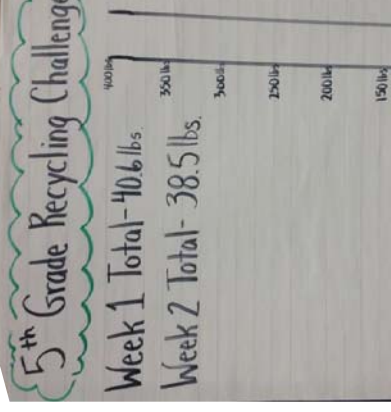 5th Grade Recycling Challenge
Week 1 Total - 40.6 lbs.
Week 2 Total - 38.5 lbs.
400 lbs
350 lbs
300 lbs
250 lbs
200 lbs
150 lbs